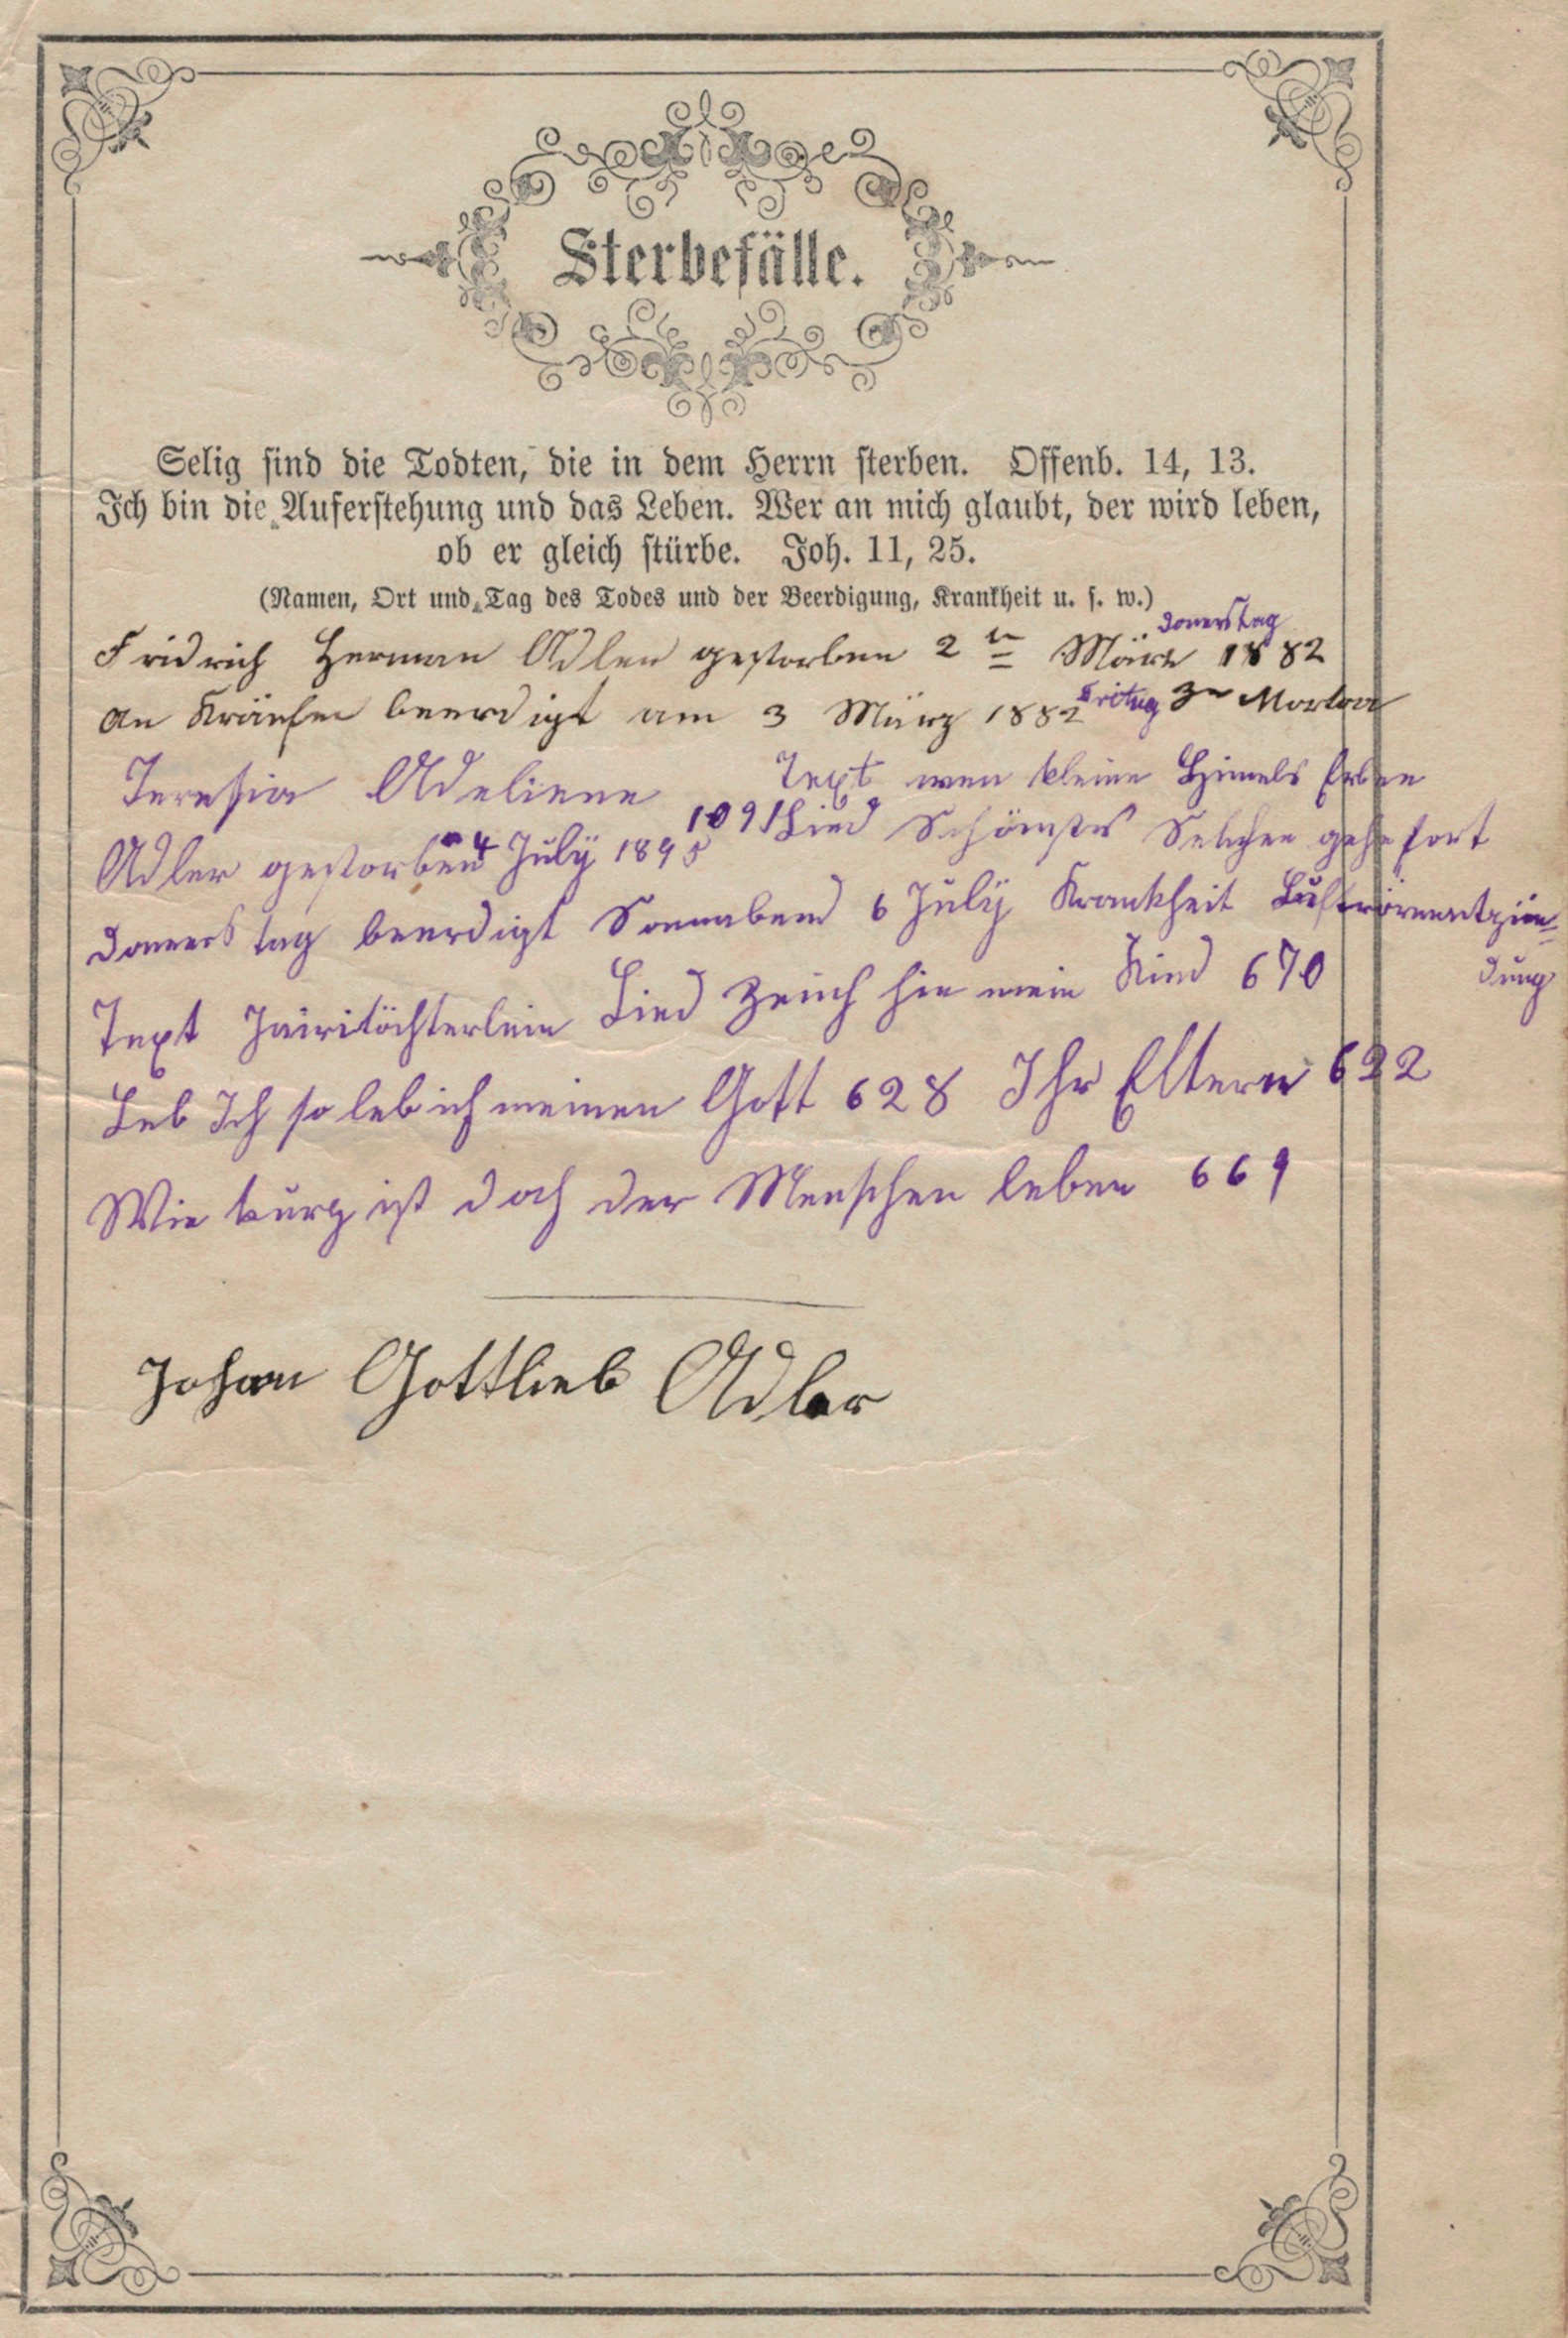 Sterbefälle.
Selig sind die Todten, die in dem Herrn sterben. Offenb. 14, 13.
Ich bin die Auferstehung und das Leben. Wer an mich glaubt, der wird leben,
ob er gleich stürbe. Joh. 11, 25.
(Namen, Ort und Tag des Todes und der Beerdigung, Krankheit u. s. w.)
Donerstag
Fridrich Herman Adler gestorben 2 März 1882
an Krämfen beerdigt am 3 März 1882 Freitag
Teresia Adeliene Text wen kleine Himels Erben
Adler gestorben 4 July 1895 1091 Lied Schönstes Selchen gehe fort
Donnerstag beerdigt Sonnabend 6 July Krankheit Luftrörenentzün=
dung
Text Jairitöchterlein Lied Zeuch hin mein Kind 670
Leb Ich so leb ich meinen Gott 628 Ihr Eltern 622
Wie kurz ist doch der Menschen leben 669
Johan Gottlieb Adler